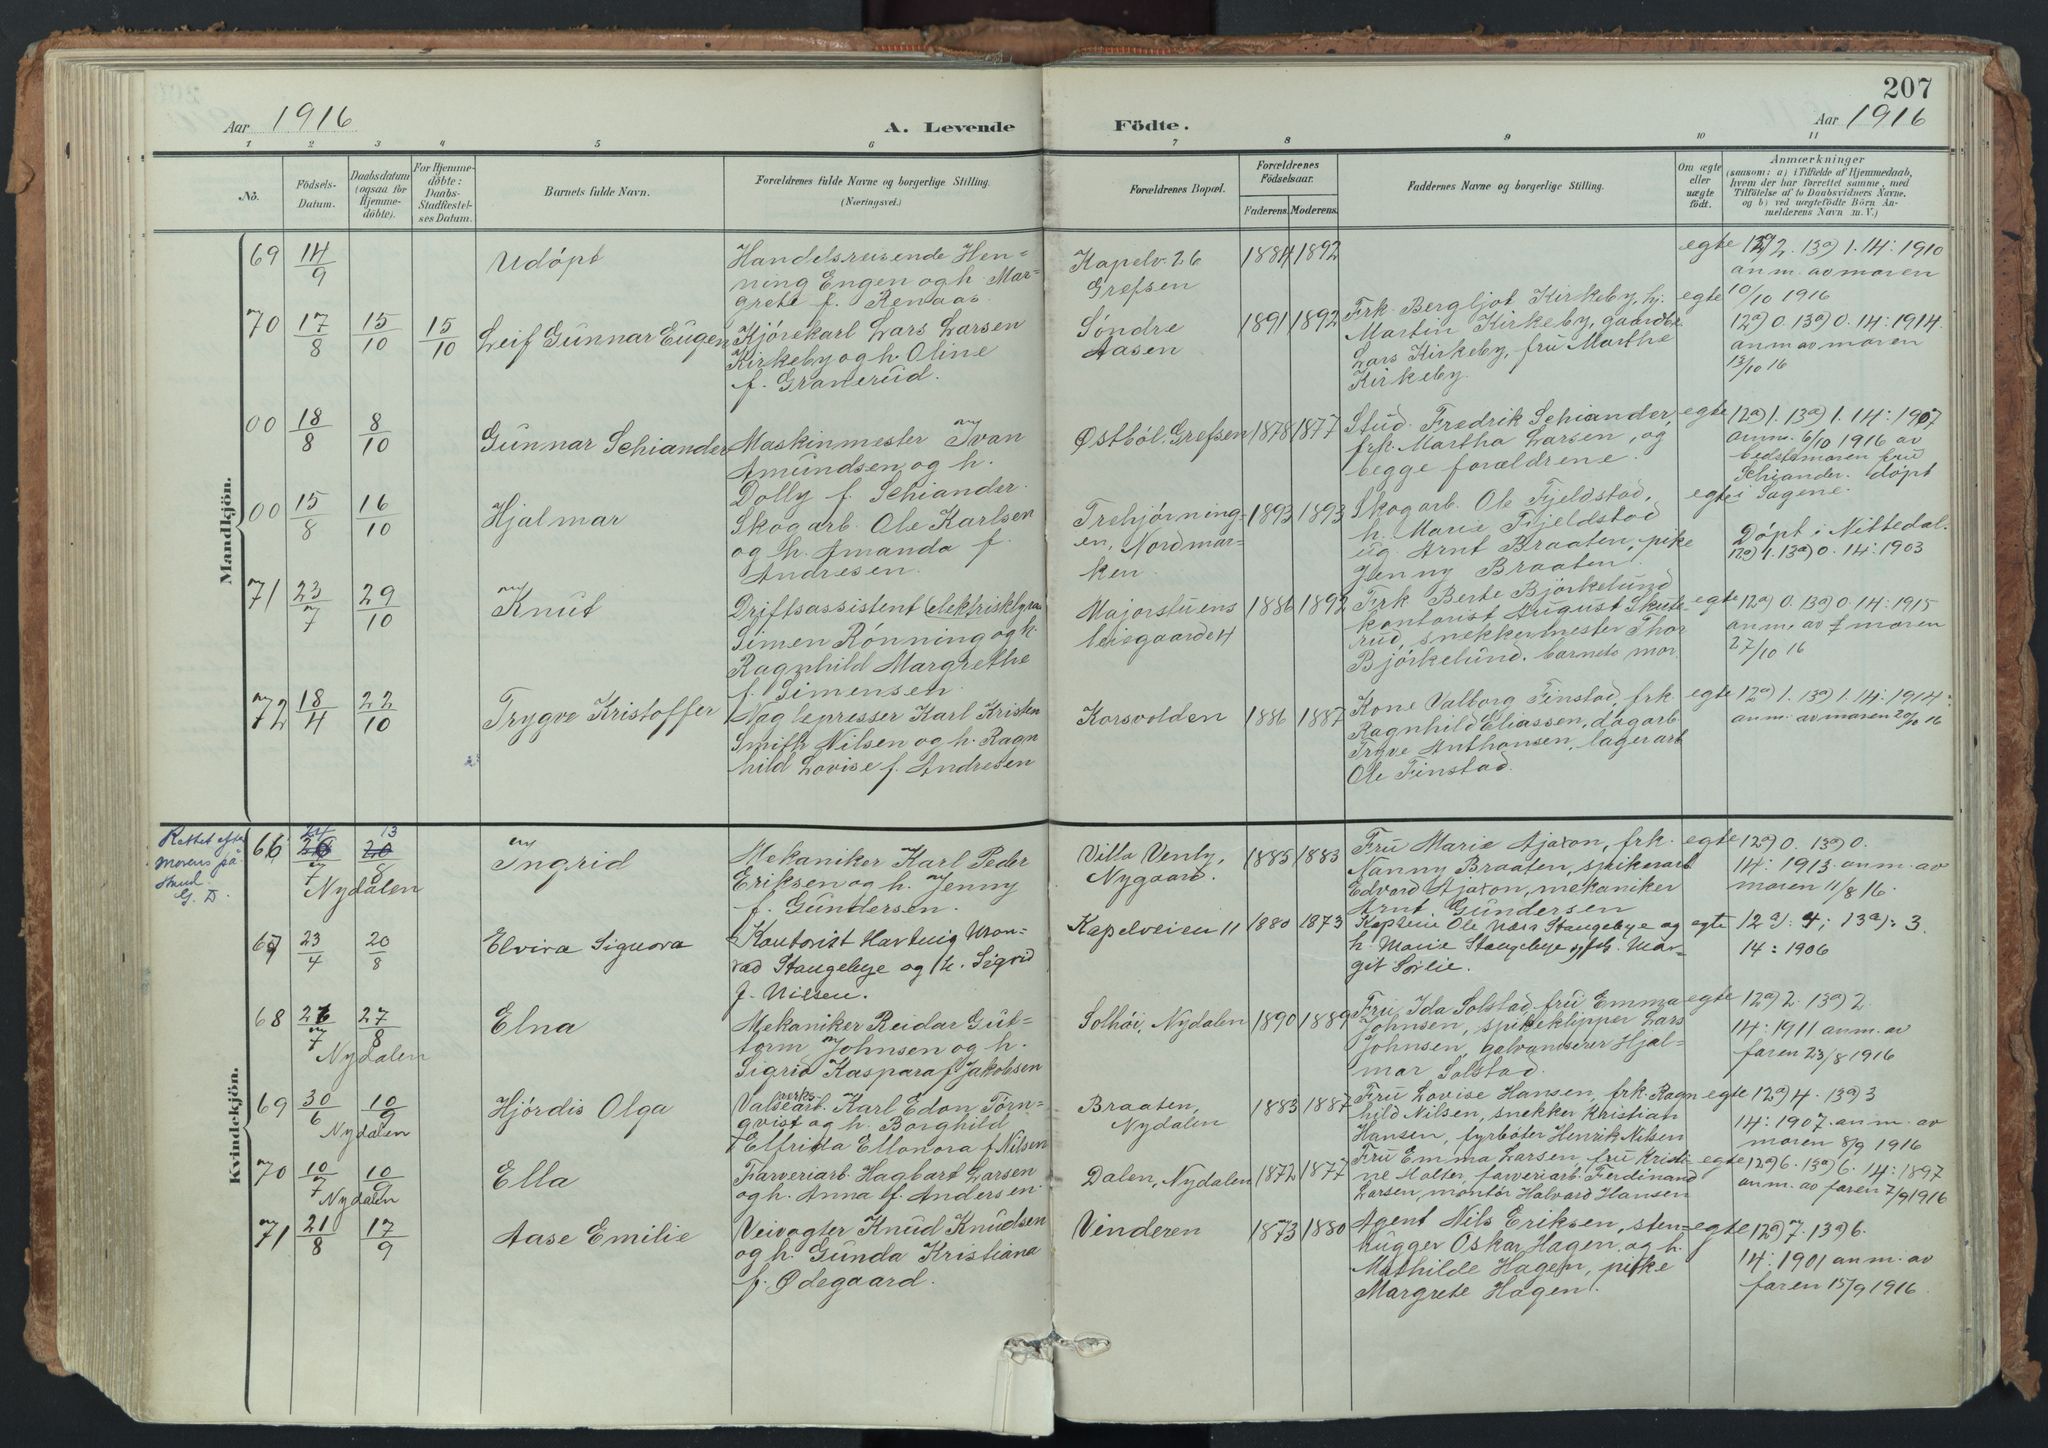 207
Aar 1916
A. Levende
Födte.
Aar 1916
1 2 3 4 5 6 7 8 9 10 11
No.
Födsels-
Datum.
Daabsdatum
(ogsaa for
Hjemme-
döbte).
For Hjemme-
döbte:
Daabs-
Stadfæstel-
ses Datum.
Barnets fulde Navn.
Forældrenes fulde Navne og borgerlige Stilling.
(Næringsvei.)
Forældrenes Bopæl.
Forældrenes
Födselsaar.
Faderens. Moderens.
Faddernes Navne og borgerlige Stilling.
Om ægte
eller
uægte
födt.
Anmærkninger
(saasom: a) i Tilfælde af Hjemmedaab,
hvem der har forrettet samme, med
Tilföielse af to Daabsvidners Navne.
og b) ved uægtefödte Börn An-
melderens Navn m. V.)
Mandkjön.
69 14/9 Udöpt
Handelsreisende Hen-
ning Engen og h. Mar-
grete f. Renaas.
Kapelv. 26
Grefsen
1884 1892
egte
12a) 2. 13a) 1. 14: 1910
anm. av moren
10/10 1916
70 17/8 15/10 15/10 Leif Gunnar Eugen
Kjörekarl Lars Larsen
Kirkeby og h. Oline
f. Granerud.
Söndre
Aasen
1891 1892
Frk. Bergljot Kirkeby, hj.
Martin Kirkeby, gaardbr.
Lars Kirkeby, fru Marthe
Kirkeby.
egte
12a) 0. 13a) 0. 14: 1914.
anm. av moren
13/10 16
00 18/8 8/10 Gunnar Schiander
Maskinmester Ivan
Amundsen og h.
Dolly f. Schiander.
Østböl. Grefsen
1878 1877
Stud. Fredrik Schiander,
frk. Martha Larsen, og
begge forældrene.
egte
12a) 1. 13a) 1. 14: 1907
anm. 6/10 1916 av
bedstemoren fru
Schiander. döpt
i Sagene.
00 15/8 16/10 Hjalmar
Skogarb. Ole Karlsen
og h. Amanda f.
Andresen.
Trehjörning-
en, Nordmar-
ken
1893 1893
Skogarb. Ole Fjeldstad,
h. Marie Fjeldstad
ug. Arnt Braaten, pike
Jenny Braaten.
egte
Döpt i Nittedal.
12a) 1. 13a) 0. 14: 1903
71 23/7 29/10 Knut
Driftsassistent (elektriskbyraa)
Simen Rönning og h.
Ragnhild Margrethe
f. Simensen.
Majorstuens
leiegaarde 4
1886 1892
Frk Berte Björkelund
kontorist August Skute-
rud, snekkermester Thor
Björkelund. barnets mor.
egte
12a) 0. 13a) 0. 14: 1915
anm. av moren
27/10 16
72 18/4 22/10 Trygve Kristoffer
Naglepresser Karl Kristen
Smith Nilsen og h. Ragn
hild Lovise f. Andresen
Korsvolden
1886 1887
Kone Valborg Finstad, frk.
Ragnhild Eliassen, dagarb.
Trygve Anthonsen, lagerarb.
Ole Finstad.
egte
12a) 1. 13a) 1. 14: 1914:
anm. av moren 20/10 16
Kvindekjön.
Rettet efter
morens paa
G. D.
66 24 26/7 13 20/8 Ingrid
Nydalen
Mekaniker Karl Peder
Eriksen og h. Jenny
f. Gundersen.
Villa Venby,
Nygaard.
1885 1883
Fru Marie Ajaxon, frk.
Nanny Braaten, spikerarb
Edvard Ajaxon, mekaniker
Arnt Gundersen
egte
12a) 0. 13a) 0.
14: 1913. anm. av
moren 11/8 16.
67 23/4 20/8 Elvira Signora
Kontorist Hartvig Mon-
rad Staugebye og h. Sigrid
f. Nilsen.
Kapelveien 11
1880 1873
Kaptein Ole Næss Staugebye og
h. Marie Staugebye, frk. Mar-
git Sörlie.
egte
12a). 4; 13a): 3.
14: 1906
68 26/7 27/8 Elna
Nydalen
Mekaniker Reidar Gut-
torm Johnsen og h.
Sigrid Kaspara f Jakobsen
Solhöi, Nydalen
1890 1889
Fru Ida Solstad, fru Emma
Johnsen, spikeklipper Lars
Johnsen, galvaniserer Hjal-
mar Solstad.
egte
12a) 2. 13a) 2.
14: 1911 anm. av
faren 23/8 1916
69 30/6 10/9 Hjördis Olga
Nydalen
Valseverksarb. Karl Edon Törn-
qvist og h. Borghild
Elfrida Ellonora f. Nilsen
Braaten,
Nydalen
1883 1887
Fru Lovise Hansen, frk. Ragn
hild Nilsen, snekker Kristian
Hansen, fyrböter Henrik Nilsen
egte
12a) 4. 13a) 3
14: 1907. anm. av
moren 8/9 1916
70 10/7 10/9 Ella
Nydalen
Farveriarb. Hagbart Larsen
og h. Anna f. Andersen.
Dalen, Nydalen
1872 1877
Fru Emma Larsen, fru Kristi-
ne Holter, farveriarb. Ferdinand
Larsen, montör Halvard Hansen
egte
12a) 6. 13a) 6. 14: 1897
anm. av faren 7/9 1916
71 21/8 17/9 Aase Emilie
Veivogter Knud Knudsen
og h. Gunda Kristiana
f. Ødegaard.
Vinderen
1873 1880
Agent Nils Eriksen, sten-
hugger Oskar Hagen, og h.
Mathilde Hagen, pike
Margrete Hagen.
egte
12a) 7. 13a) 6.
14: 1901 anm. av
faren 15/9 1916.